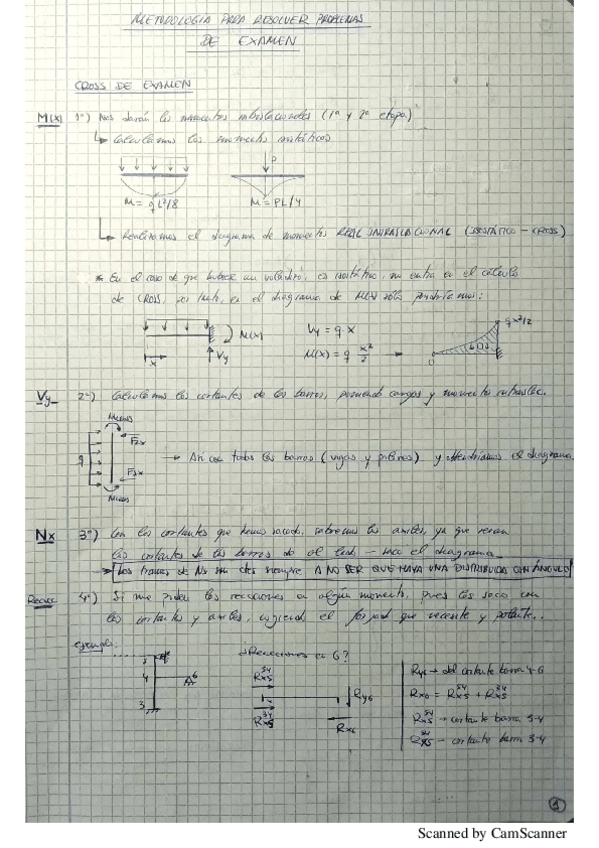 METODOLOGÍA PARA RESOLVER PROBLEMAS
DE EXAMEN
CROSS DE EXAMEN
M(x) 1º) Nos darán los momentos intraslacionales (1ª y 2ª etapa)
↳ Calculamos los momentos isostáticos
P
M = qL²/8
M = PL/4
↳ Realizamos el diagrama de momentos REAL INTRASLACIONAL (ISOSTÁTICO - CROSS)
* En el caso de que hubiese un voladizo, es isostático, no entra en el cálculo
de CROSS, por tanto, en el diagrama de M(x) sólo pondríamos:
M(x)
x
Vy
Vy = q·x
M(x) = q x²/2
qx²/2
Vy 2º) Calculamos los cortantes de las barras, poniendo cargas y momentos intraslac.
q
→ Así con todas las barras (vigas y pilares) y obtendríamos el diagrama.
Nx 3º) Con los cortantes que hemos sacado, sabremos los axiles, ya que serán
los cortantes de las barras de al lado - saco el diagrama
→ Los tramos de Ns son ctes siempre A NO SER QUE HAYA UNA DISTRIBUIDA CON ÁNGULO
Reacc 4º) Si me piden las reacciones en algún momento, pues las saco con
los cortantes y axiles, cogiendo el forjado que necesite y
ejemplo:
5
4
6
3
¿Reacciones en 6?
Ry6
Rx6
Ry6 → del cortante barra 4-6
→ cortante barra 5-4
→ cortante barra 3-4
1
Scanned by CamScanner